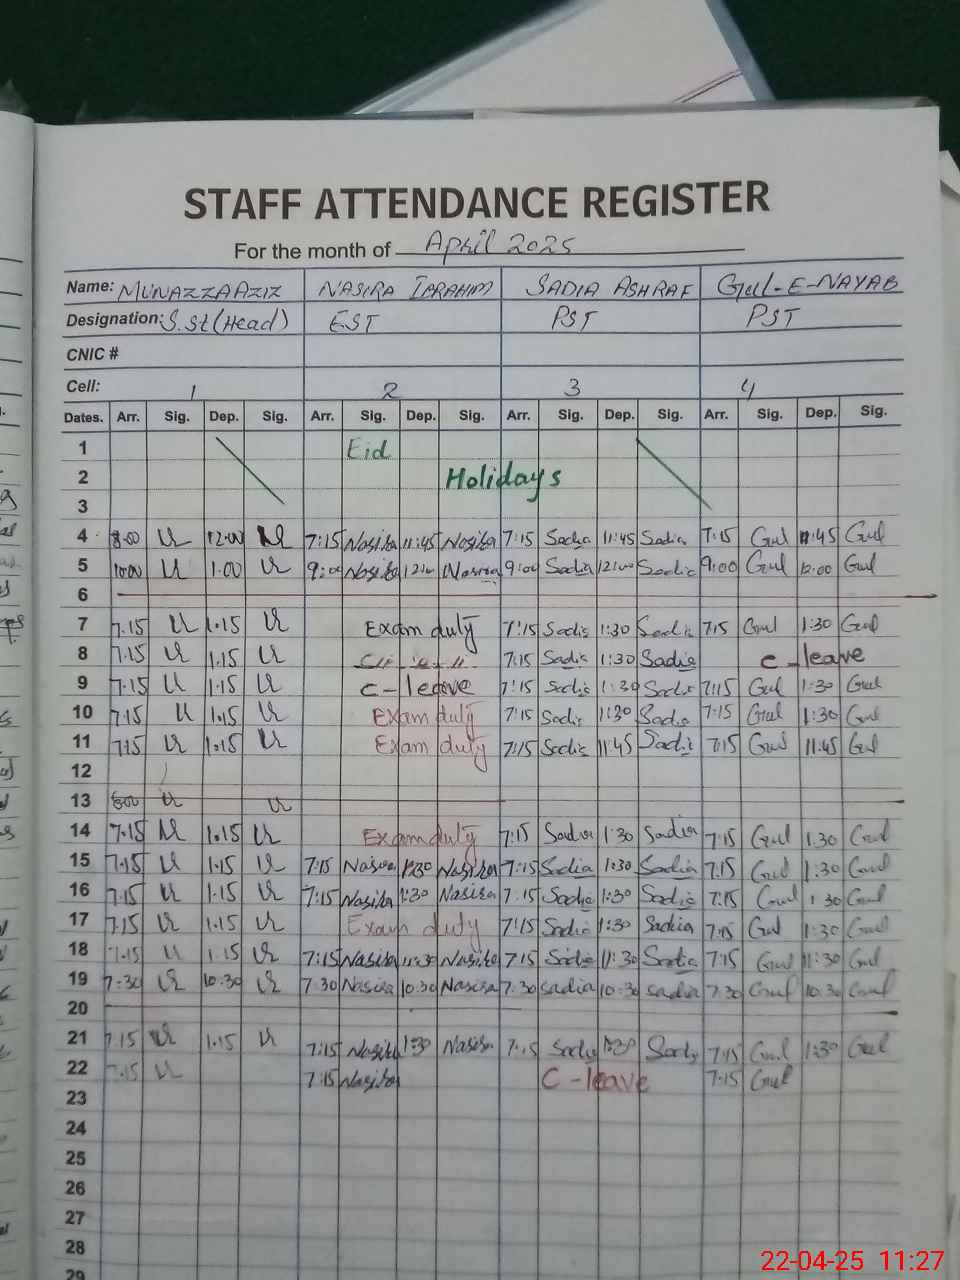 STAFF ATTENDANCE REGISTER
For the month of April 2025
Name: MUNAZZA AZIZ NASIRA IBRAHIM SADIA ASHRAF Gul-E-NAYAB
Designation: S.St (Head) EST PST PST
CNIC #
Cell: 1 2 3 4
Dates. Arr. Sig. Dep. Sig. Arr. Sig. Dep. Sig. Arr. Sig. Dep. Sig. Arr. Sig. Dep. Sig.
1 Eid
2 Holidays
3
4 8.00 12.00 7:15 Nasira 11:45 Nasira 7:15 Sadia 11:45 Sadia 7:15 Gul 11:45 Gul
5 10.00 1.00 9:00 Nasira Nasira 9:00 Sadia 12:00 Sadia 9:00 Gul 12:00 Gul
6
7 7.15 1.15 Exam duty 7:15 Sadia 1:30 Sadia 7:15 Gul 1:30 Gul
8 7.15 1.15 7:15 Sadia 1:30 Sadia c-leave
9 7.15 1.15 c-leave 7:15 Sadia 1:30 Sadia 7:15 Gul 1:30 Gul
10 7.15 1.15 Exam duty 7:15 Sadia 1:30 Sadia 7:15 Gul 1:30 Gul
11 7.15 1.15 Exam duty 7:15 Sadia 11:45 Sadia 7:15 Gul 11:45 Gul
12
13
14 7.15 1.15 Exam duty 7:15 Sadia 1:30 Sadia 7:15 Gul 1.30 Gul
15 7.15 1.15 7:15 Nasira 1:30 Nasira 7:15 Sadia 1:30 Sadia 7:15 Gul 1:30 Gul
16 7.15 1.15 7:15 Nasira 1:30 Nasira 7.15 Sadia 1:30 Sadia 7:15 Gul 1 30 Gul
17 7.15 1.15 Exam duty 7:15 Sadia 1:30 Sadia 7:15 Gul 1:30 Gul
18 7.15 1.15 7:15 Nasira 11:30 Nasira 7:15 Sadia 11:30 Sadia 7:15 Gul 11:30 Gul
19 7:30 10.30 7:30 Nasira 10:30 Nasira 7:30 Sadia 10:30 Sadia 7:30 Gul 10:30 Gul
20
21 7.15 1.15 7:15 Nasira 1:30 Nasira 7:15 Sadia 1:30 Sadia 7:15 Gul 1:30 Gul
22 7.15 7:15 Nasira C-leave 7:15 Gul
23
24
25
26
27
28
29
22-04-25 11:27